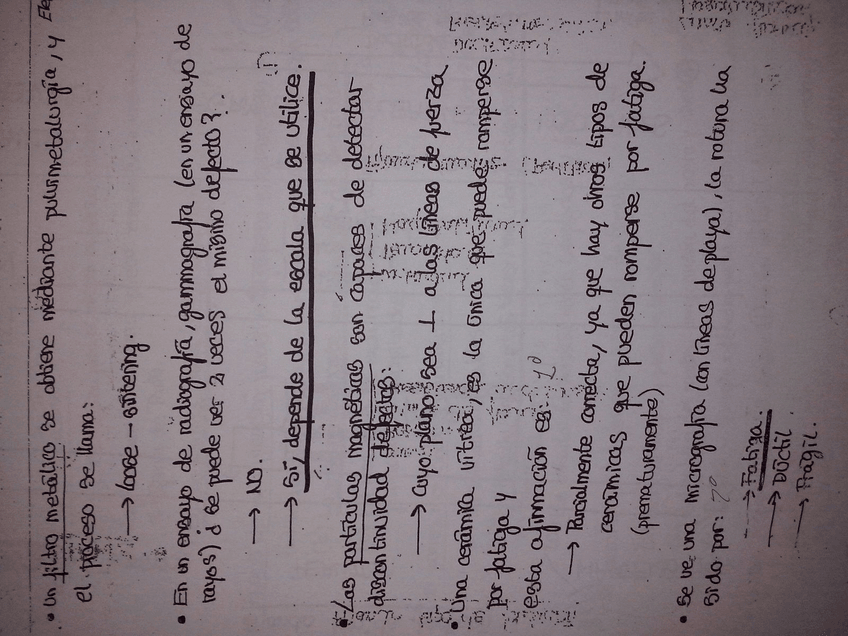 • Un filtro metálico se obtiene mediante pulvimetalurgia, y
el proceso se llama:
→ Loose - sintering.
• En un ensayo de radiografía, gammagrafía (en un ensayo de
rayos) ¿ Se puede ver 2 veces el mismo defecto?
→ NO.
→ Sí, depende de la escala que se utilice.
• Las partículas magnéticas son capaces de detectar
discontinuidad defectos:
→ Cuyo plano sea ⊥ a las líneas de fuerza
• Una cerámica vítrea, es la única que puede romperse
por fatiga y
esta afirmación es:
→ Parcialmente correcta, ya que hay otros tipos de
cerámicas que pueden romperse por fatiga.
(prematuramente)
• Se ve una micrografía (con líneas de playa), la rotura ha
sido por:
→ Fatiga.
→ Dúctil.
→ Frágil.